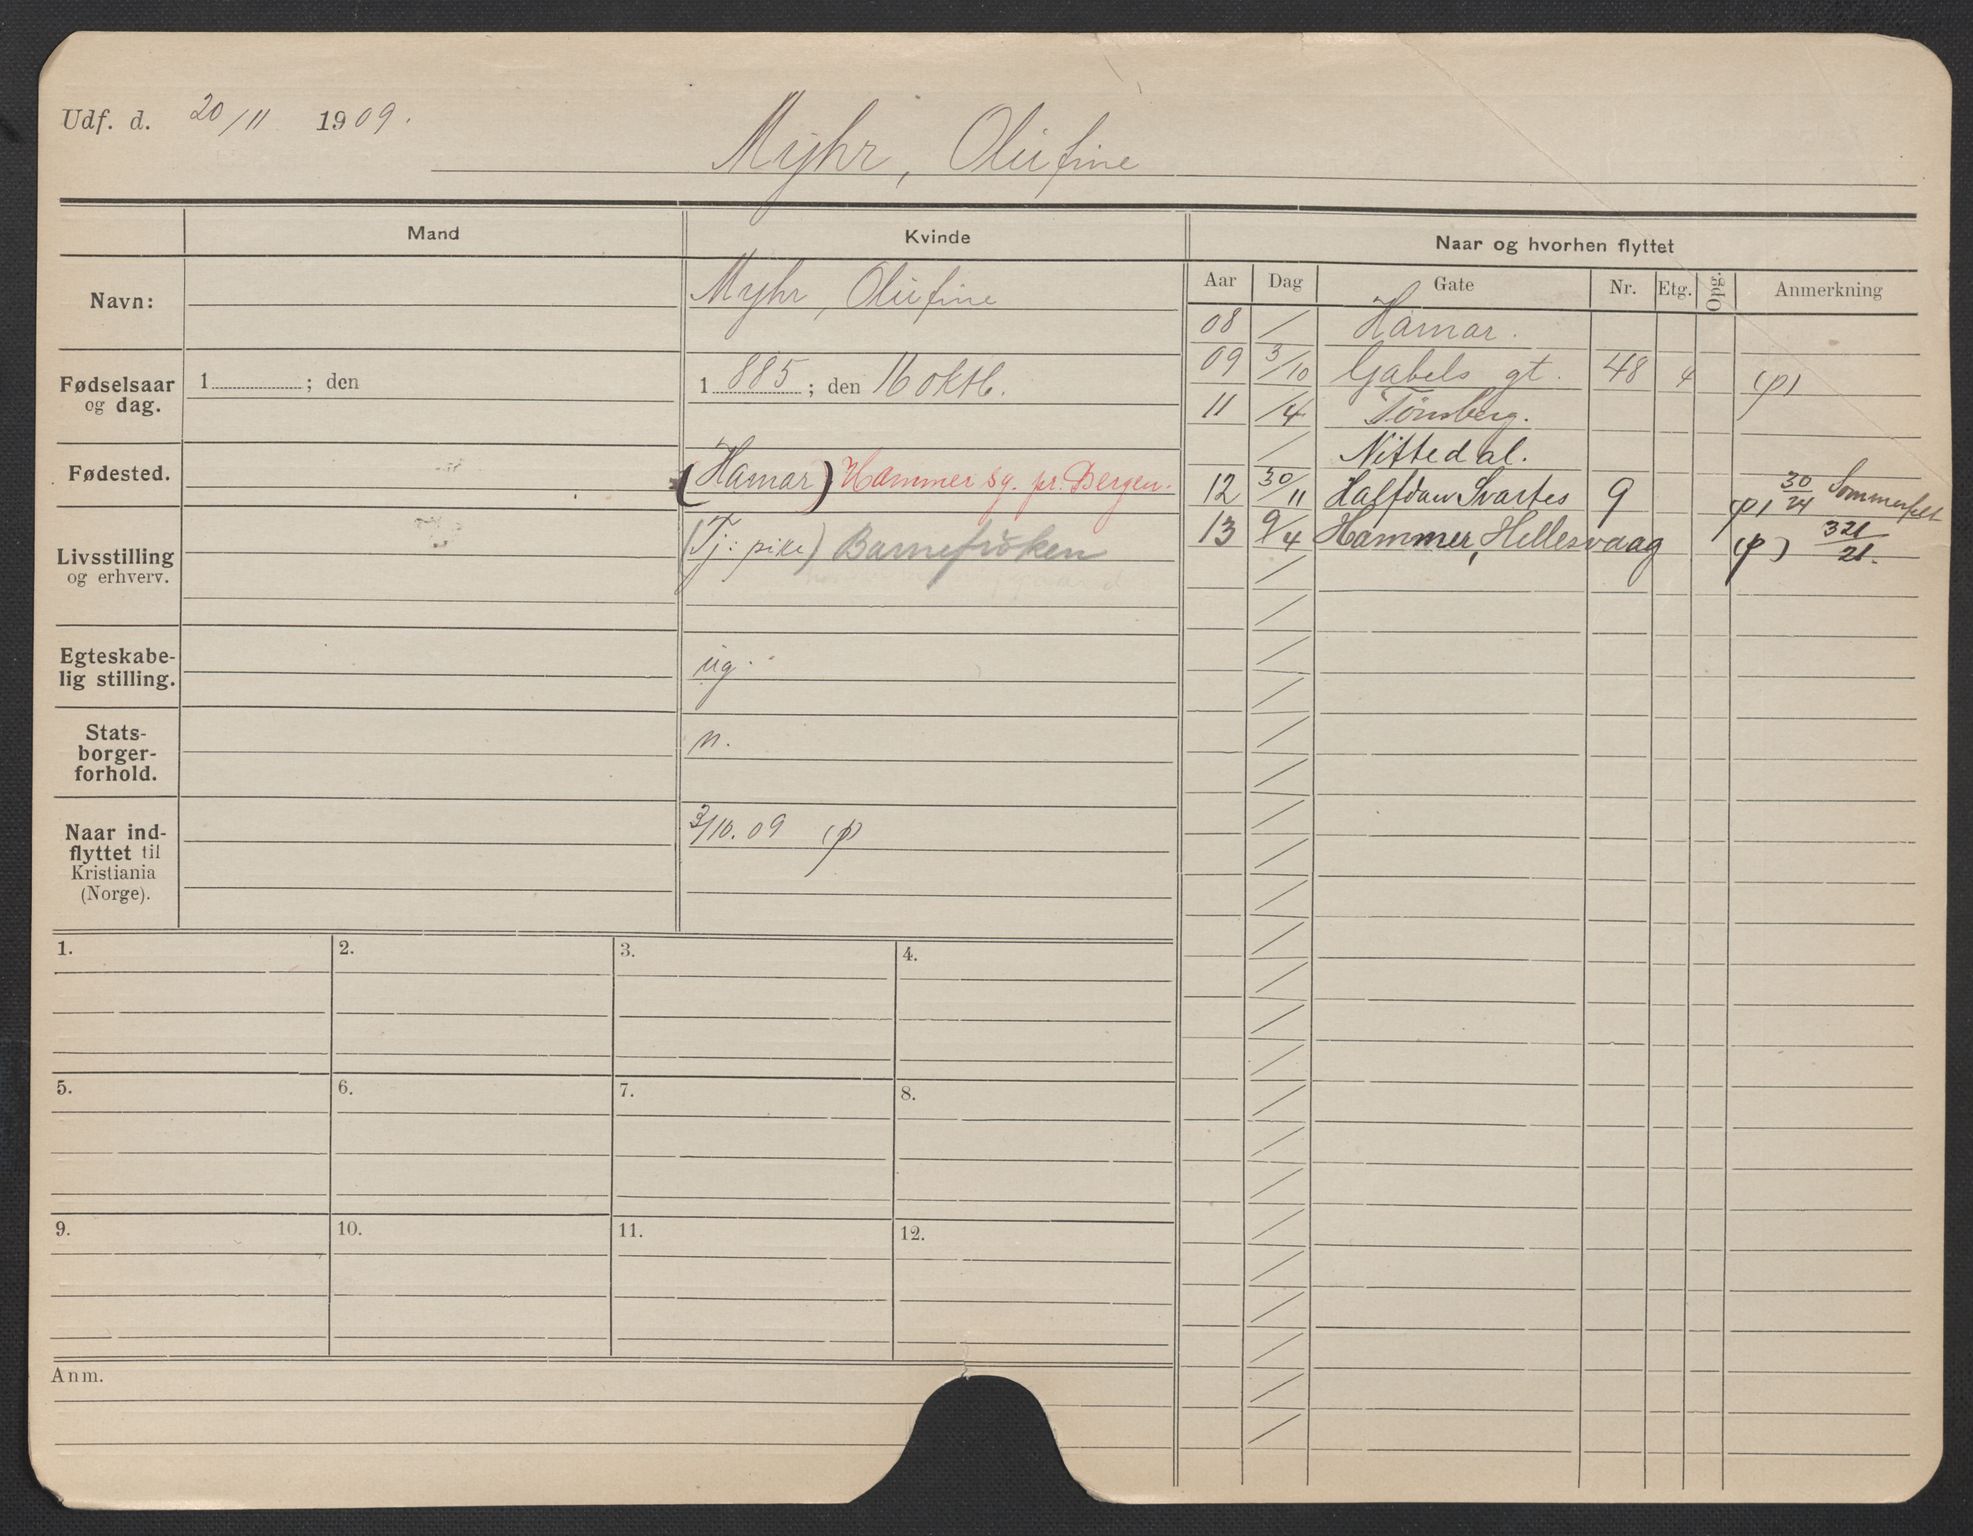 Udf. d. 20/11 1909.
Myhr, Olufine
Mand
Kvinde
Naar og hvorhen flyttet
Aar Dag Gate Nr. Etg. Opg. Anmerkning
Navn:
Myhr, Olufine
Fødselsaar og dag.
1 ; den
1 885 ; den 16 oktb.
Fødested.
(Hamar) Hammer sg. pr. Bergen.
Livsstilling og erhverv.
(Tj: pike) Barnefrøken
Egteskabe-
lig stilling.
ug.
Stats-
borger-
forhold.
n.
Naar ind-
flyttet til
Kristiania
(Norge).
3/10. 09 (p)
08 / Hamar.
09 3/10 Gabels gt. 48 4 (p)
11 /4 Tønsberg.
/ Nittedal.
12 30/11 Halfdan Svartes 9 (p) 30/24 Sommerfelt
13 9/4 Hammer, Hellesvaag (p) 321/21.
1. 2. 3. 4.
5. 6. 7. 8.
9. 10. 11. 12.
Anm.